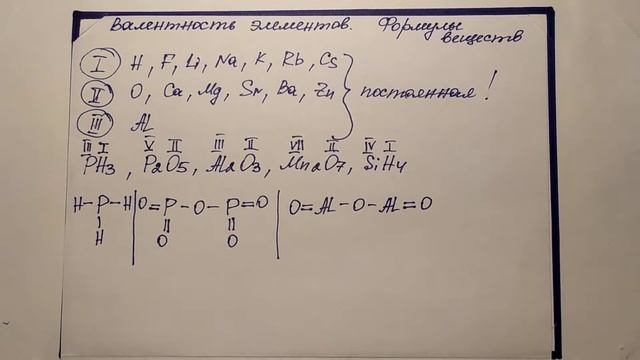 Валентность элементов. Формулы
веществ
I H, F, Li, Na, K, Rb, Cs
II O, Ca, Mg, Sr, Ba, Zn } постоянная!
III AL
III I V II III II VII II IV I
PH3, P2O5, Al2O3, Mn2O7, SiH4
H-P-H O=P-O-P=O O=AL-O-AL=O
| || ||
H O O